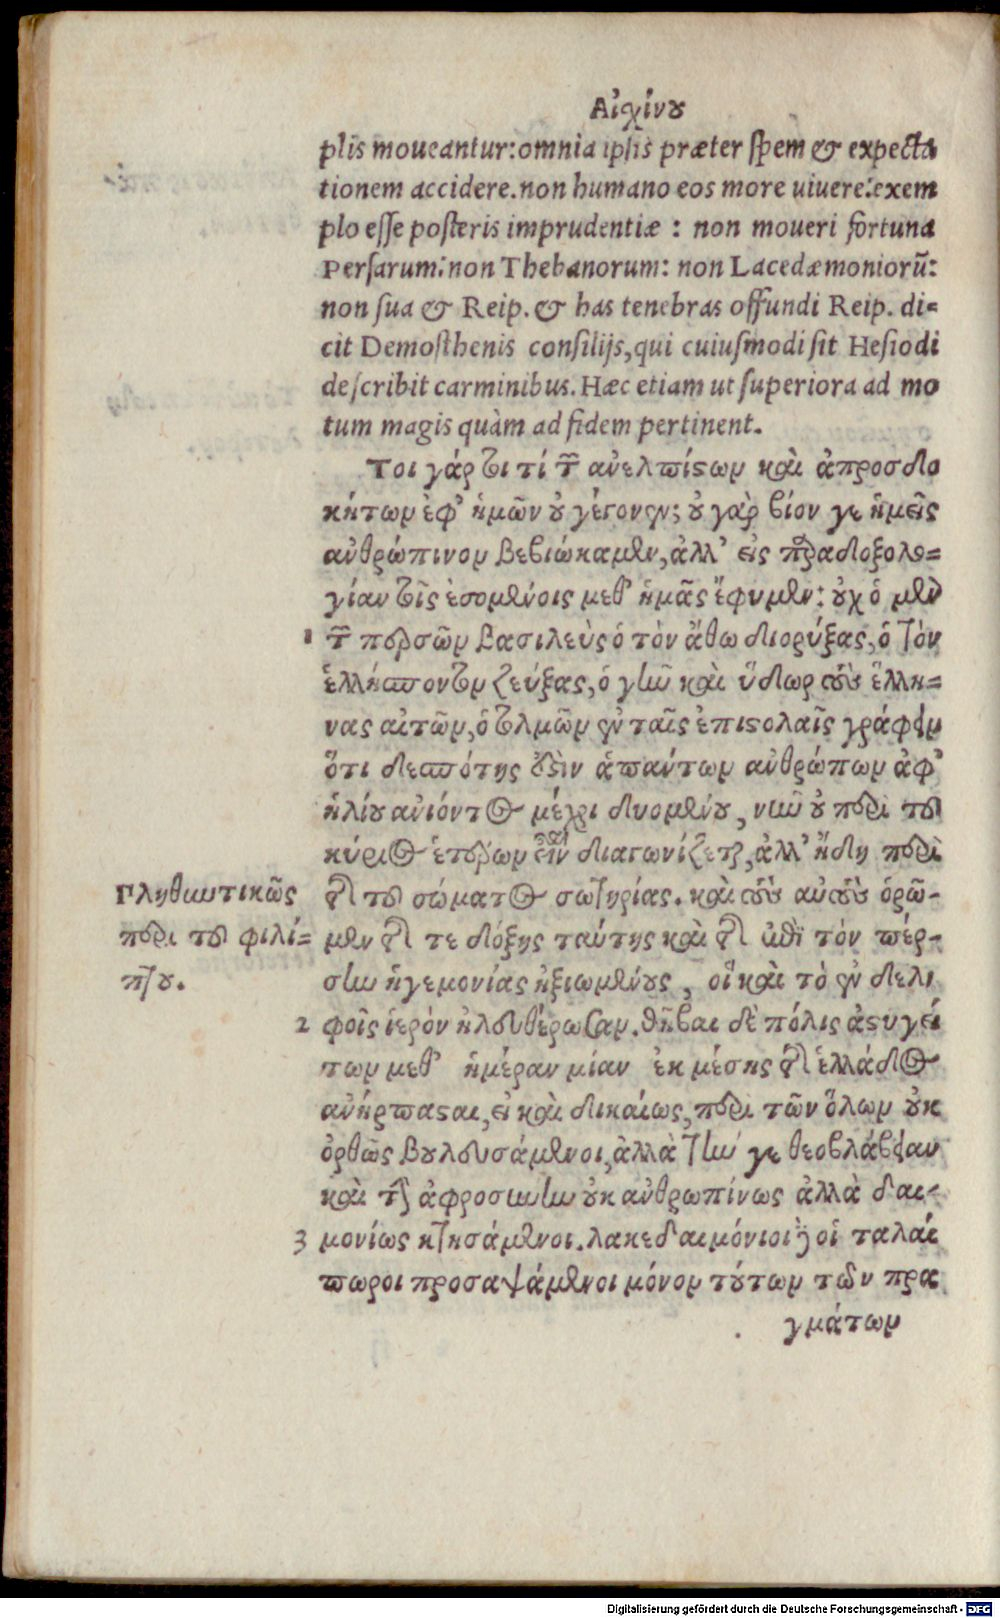 Αἰχίνου
plis moueantur: omnia ipsis præter spem & expecta
tionem accidere. non humano eos more uiuere: exem
plo esse posteris imprudentiæ : non moueri fortuna
Persarum: non Thebanorum: non Lacedæmoniorū:
non sua & Reip. & has tenebras offundi Reip. di=
cit Demosthenis consilijs, qui cuiusmodi sit Hesiodi
describit carminibus. Hæc etiam ut superiora ad mo
tum magis quàm ad fidem pertinent.
Τοι γάρ τοι τί τῶν ἀνελπίστων καὶ ἀπροσδο
κήτων ἐφ' ἡμῶν οὐ γέγονεν; οὐ γὰρ βίον γε ἡμεῖς
ἀνθρώπινον βεβιώκαμεν, ἀλλ' εἰς παραδοξολο=
γίαν τοῖς ἐσομένοις μεθ' ἡμᾶς ἔφυμεν: οὐχ ὁ μὲν
1 τῶν περσῶν βασιλεὺς ὁ τὸν ἄθω διορύξας, ὁ τὸν
ἑλλήσποντον ζεύξας, ὁ γῆν καὶ ὕδωρ τοὺς ἕλλη=
νας αἰτῶν, ὁ τολμῶν ἐν ταῖς ἐπιστολαῖς γράφειν
ὅτι δεσπότης ἐστὶν ἁπάντων ἀνθρώπων ἀφ'
ἡλίου ἀνιόντος μέχρι δυομένου, νῦν οὐ περὶ τοῦ
κύριος ἑτέρων εἶναι διαγωνίζεται, ἀλλ' ἤδη περὶ
Πληθυντικῶς
περὶ τοῦ φιλί=
ππου.
τῆς τοῦ σώματος σωτηρίας. καὶ τοὺς αὐτοὺς ὁρῶ-
μεν τῆς τε δόξης ταύτης καὶ τῆς ἐπὶ τὸν πέρ-
σην ἡγεμονίας ἠξιωμένους, οἳ καὶ τὸ ἐν δελ
2 φοῖς ἱερὸν ἠλευθέρωσαν. θῆβαι δὲ πόλις ἀστυγεί
των μεθ' ἡμέραν μίαν ἐκ μέσης τῆς ἑλλάδος
ἀνήρπασται, εἰ καὶ δικαίως, περὶ τῶν ὅλων οὐκ
ὀρθῶς βουλευσάμενοι, ἀλλὰ τήν γε θεοβλάβειαν
καὶ τὴν ἀφροσύνην οὐκ ἀνθρωπίνως ἀλλὰ δαι-
3 μονίως κτησάμενοι. λακεδαιμόνιοι δ' οἱ ταλαί
πωροι προσαψάμενοι μόνον τούτων τῶν πρα
γμάτων
Digitalisierung gefördert durch die Deutsche Forschungsgemeinschaft - DFG